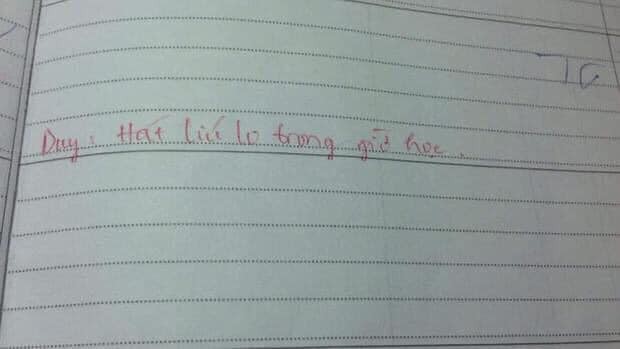 Duy: Hát líu lo trong giờ học.